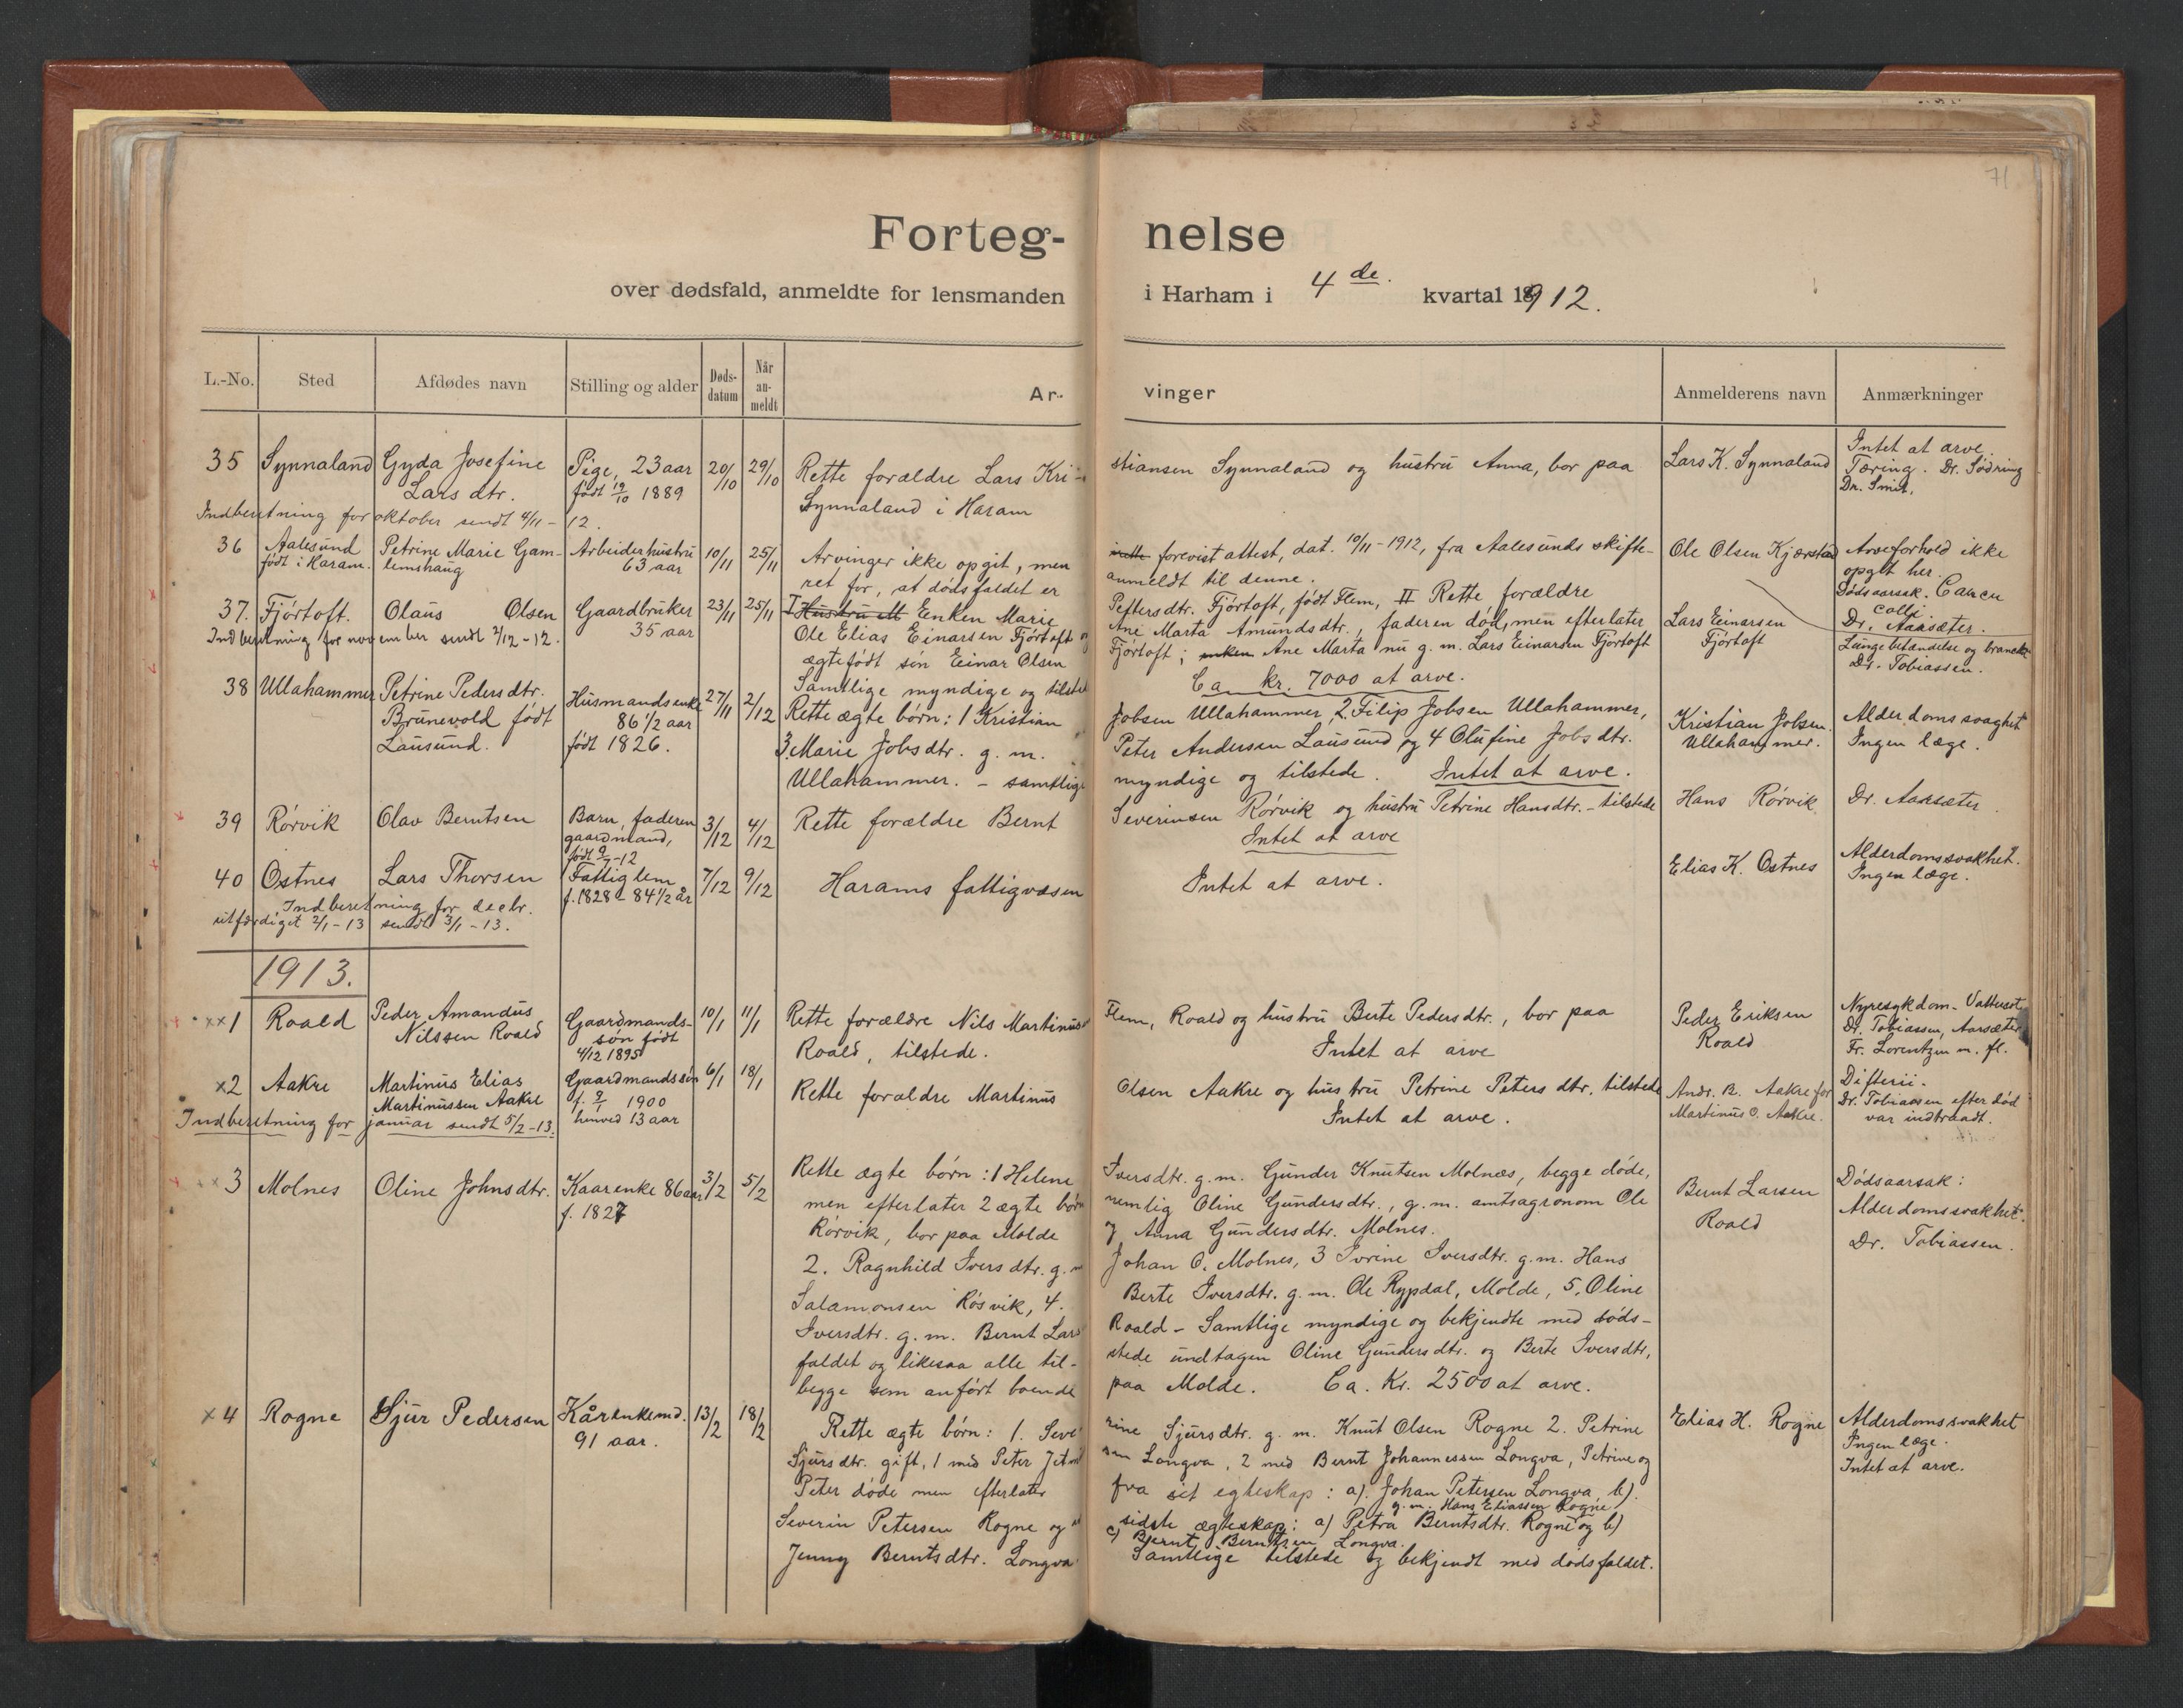 71
Forteg- nelse
over dødsfald, anmeldte for lensmanden i Harham i 4 de. kvartal 1912.
L.-No. Sted Afdødes navn Stilling og alder Døds-datum Når an-meldt Ar- vinger Anmelderens navn Anmærkninger
35 Synnaland Gyda Josefine Pige, 23 aar 20/10 29/10 Rette forældre Lars Kri- stiansen Synnaland og hustru Anna, bor paa Lars K. Synnaland Intet at arve.
Lars dtr. født 19/10 1889 Synnaland i Haram Tæring. Dr. Sødring
Dr. Smit.
Indberetning for oktober sendt 4/11-12.
36 Aalesund Petrine Marie Gam- Arbeiderhustru 10/11 25/11 Arvinger ikke opgit, men forevist attest, dat. 10/11-1912, fra Aalesunds skifte- Ole Olsen Kjærstad Arveforhold ikke
født i Haram. lemshaug 63 aar ret for, at dødsfaldet er anmeldt til denne. opgit her.
Dødsaarsak. Cancer
colli.
Dr. Aarsæter.
37. Fjørtoft. Olaus Olsen Gaardbruker 23/11 25/11 I Enken Marie Pettersdtr. Fjørtoft, født Flem, II Rette forældre
35 aar Ole Elias Einarsen Fjørtoft og Ane Marta Amundsdtr., faderen død, men efterlater Lars Einarsen
Indberetning for november sendt 2/12-12. ægtefødt søn Einar Olsen Fjørtoft; Ane Marta nu g. m. Lars Einarsen Fjørtoft Fjørtoft Lungebetændelse og
Samtlige myndige og tilstede Ca kr. 7000 at arve. Dr. Tobiassen.
38 Ullahammer Petrine Pedersdtr. Husmandsenke 27/11 2/12 Rette ægte børn: 1 Kristian Jobsen Ullahammer, 2. Filip Jobsen Ullahammer, Kristian Jobsen Alderdomssvaghet
Brunevold født 86 1/2 aar 3. Marie Jobsdtr. g. m. Peter Andersen Lausund og 4 Olufine Jobsdtr. Ullahammer. Ingen læge.
Lausund. født 1826. Ullahammer. - samtlige myndige og tilstede. Intet at arve.
39 Rørvik Olav Berntsen Barn, faderen 3/12 4/12 Rette forældre Bernt Severinsen Rørvik og hustru Petrine Hansdtr. - tilstede Hans Rørvik Dr. Aarsæter
gaardmand, Intet at arve
født 9/7-12
40 Ostnes Lars Thorsen Fattiglem 7/12 9/12 Harams fattigvæsen Intet at arve. Elias K. Ostnes Alderdomssvakhet.
f. 1828 - 84 1/2 år Ingen læge.
Indberetning for decbr.
utfærdiget 2/1-13 sendt 3/1-13.
1913.
xx1 Roald Peder Amandus Gaardmands- 10/1 11/1 Rette forældre Nils Martinusen Flem, Roald og hustru Berte Pedersdtr., bor paa Peder Eriksen Nyresykdom - Vattersot
Nilssen Roald søn født Roald, tilstede. Intet at arve Roald Dr. Tobiassen, Aarsæter
4/12 1895 Fr. Lorentzen m. fl.
x2 Aakre Martinus Elias Gaardmandssøn 6/1 18/1 Rette forældre Martinus Olsen Aakre og hustru Petrine Peters dtr. tilstede Andr. B. Aakre for Difterii.
Martinussen Aakre f. 9/1 1900 Intet at arve. Martinus O. Aakre. Dr. Tobiassen efter død
henved 13 aar var indtraadt.
Indberetning for januar sendt 5/2-13.
xx3 Molnes Oline Johnsdtr. Kaarenke 86 aar 3/2 5/2 Rette ægte børn: 1 Helene Iversdtr. g. m. Gunder Knutsen Molnæs, begge døde, Bernt Larsen Dødsaarsak:
f. 1827 men efterlater 2 ægte børn nemlig Oline Gundersdtr., g. m. amtsagronom Ole Roald Alderdomssvakhet.
Rørvik, bor paa Molde og Anna Gundersdtr. Molnes. Dr. Tobiassen.
2. Ragnhild Iversdtr. g. m Johan O. Molnes, 3 Ivrine Iversdtr. g. m. Hans
Salamonsen Røsvik, 4. Berte Iversdtr. g. m. Ole Rypdal, Molde, 5. Oline
Iversdtr. g. m. Bernt Lars Roald - Samtlige myndige og bekjendte med døds-
faldet og likesaa alle til- stede undtagen Oline Gundersdtr. og Berte Iversdtr,
begge som anført boende paa Molde. Ca. Kr. 2500 at arve.
x4 Rogne Sjur Pedersen Kårenkemd. 13/2 18/2 Rette ægte børn: 1. Seve rine Sjursdtr. g. m. Knut Olsen Rogne 2. Petrine Elias H. Rogne Alderdomssvakhet
91 aar. Sjursdtr. gift, 1 med Peter Longva, 2 med Bernt Johannessen Longva, Petrine og Ingen læge.
Peter døde men efterlater fra sit egteskap: a). Johan Petersen Longva, b). Intet at arve.
g. m. Hans Eliassen Rogne
Severin Petersen Rogne og sidste ægteskap: a) Petra Berntsdtr. Rogne og b)
c) Bernt Berntsen Longva.
Jenny Berntsdtr. Longva Samtlige tilstede og bekjendt med dødsfaldet.